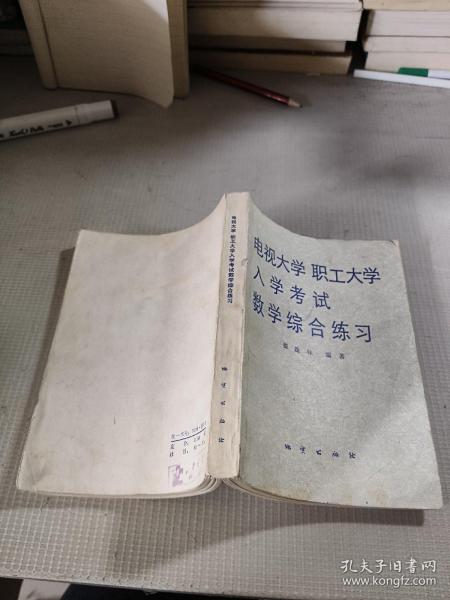 电视大学 职工大学
入学考试
数学综合练习
编著
地质出版社
电视大学 职工大学入学考试数学综合练习
地质出版社
孔夫子旧书网
www.kongfz.com